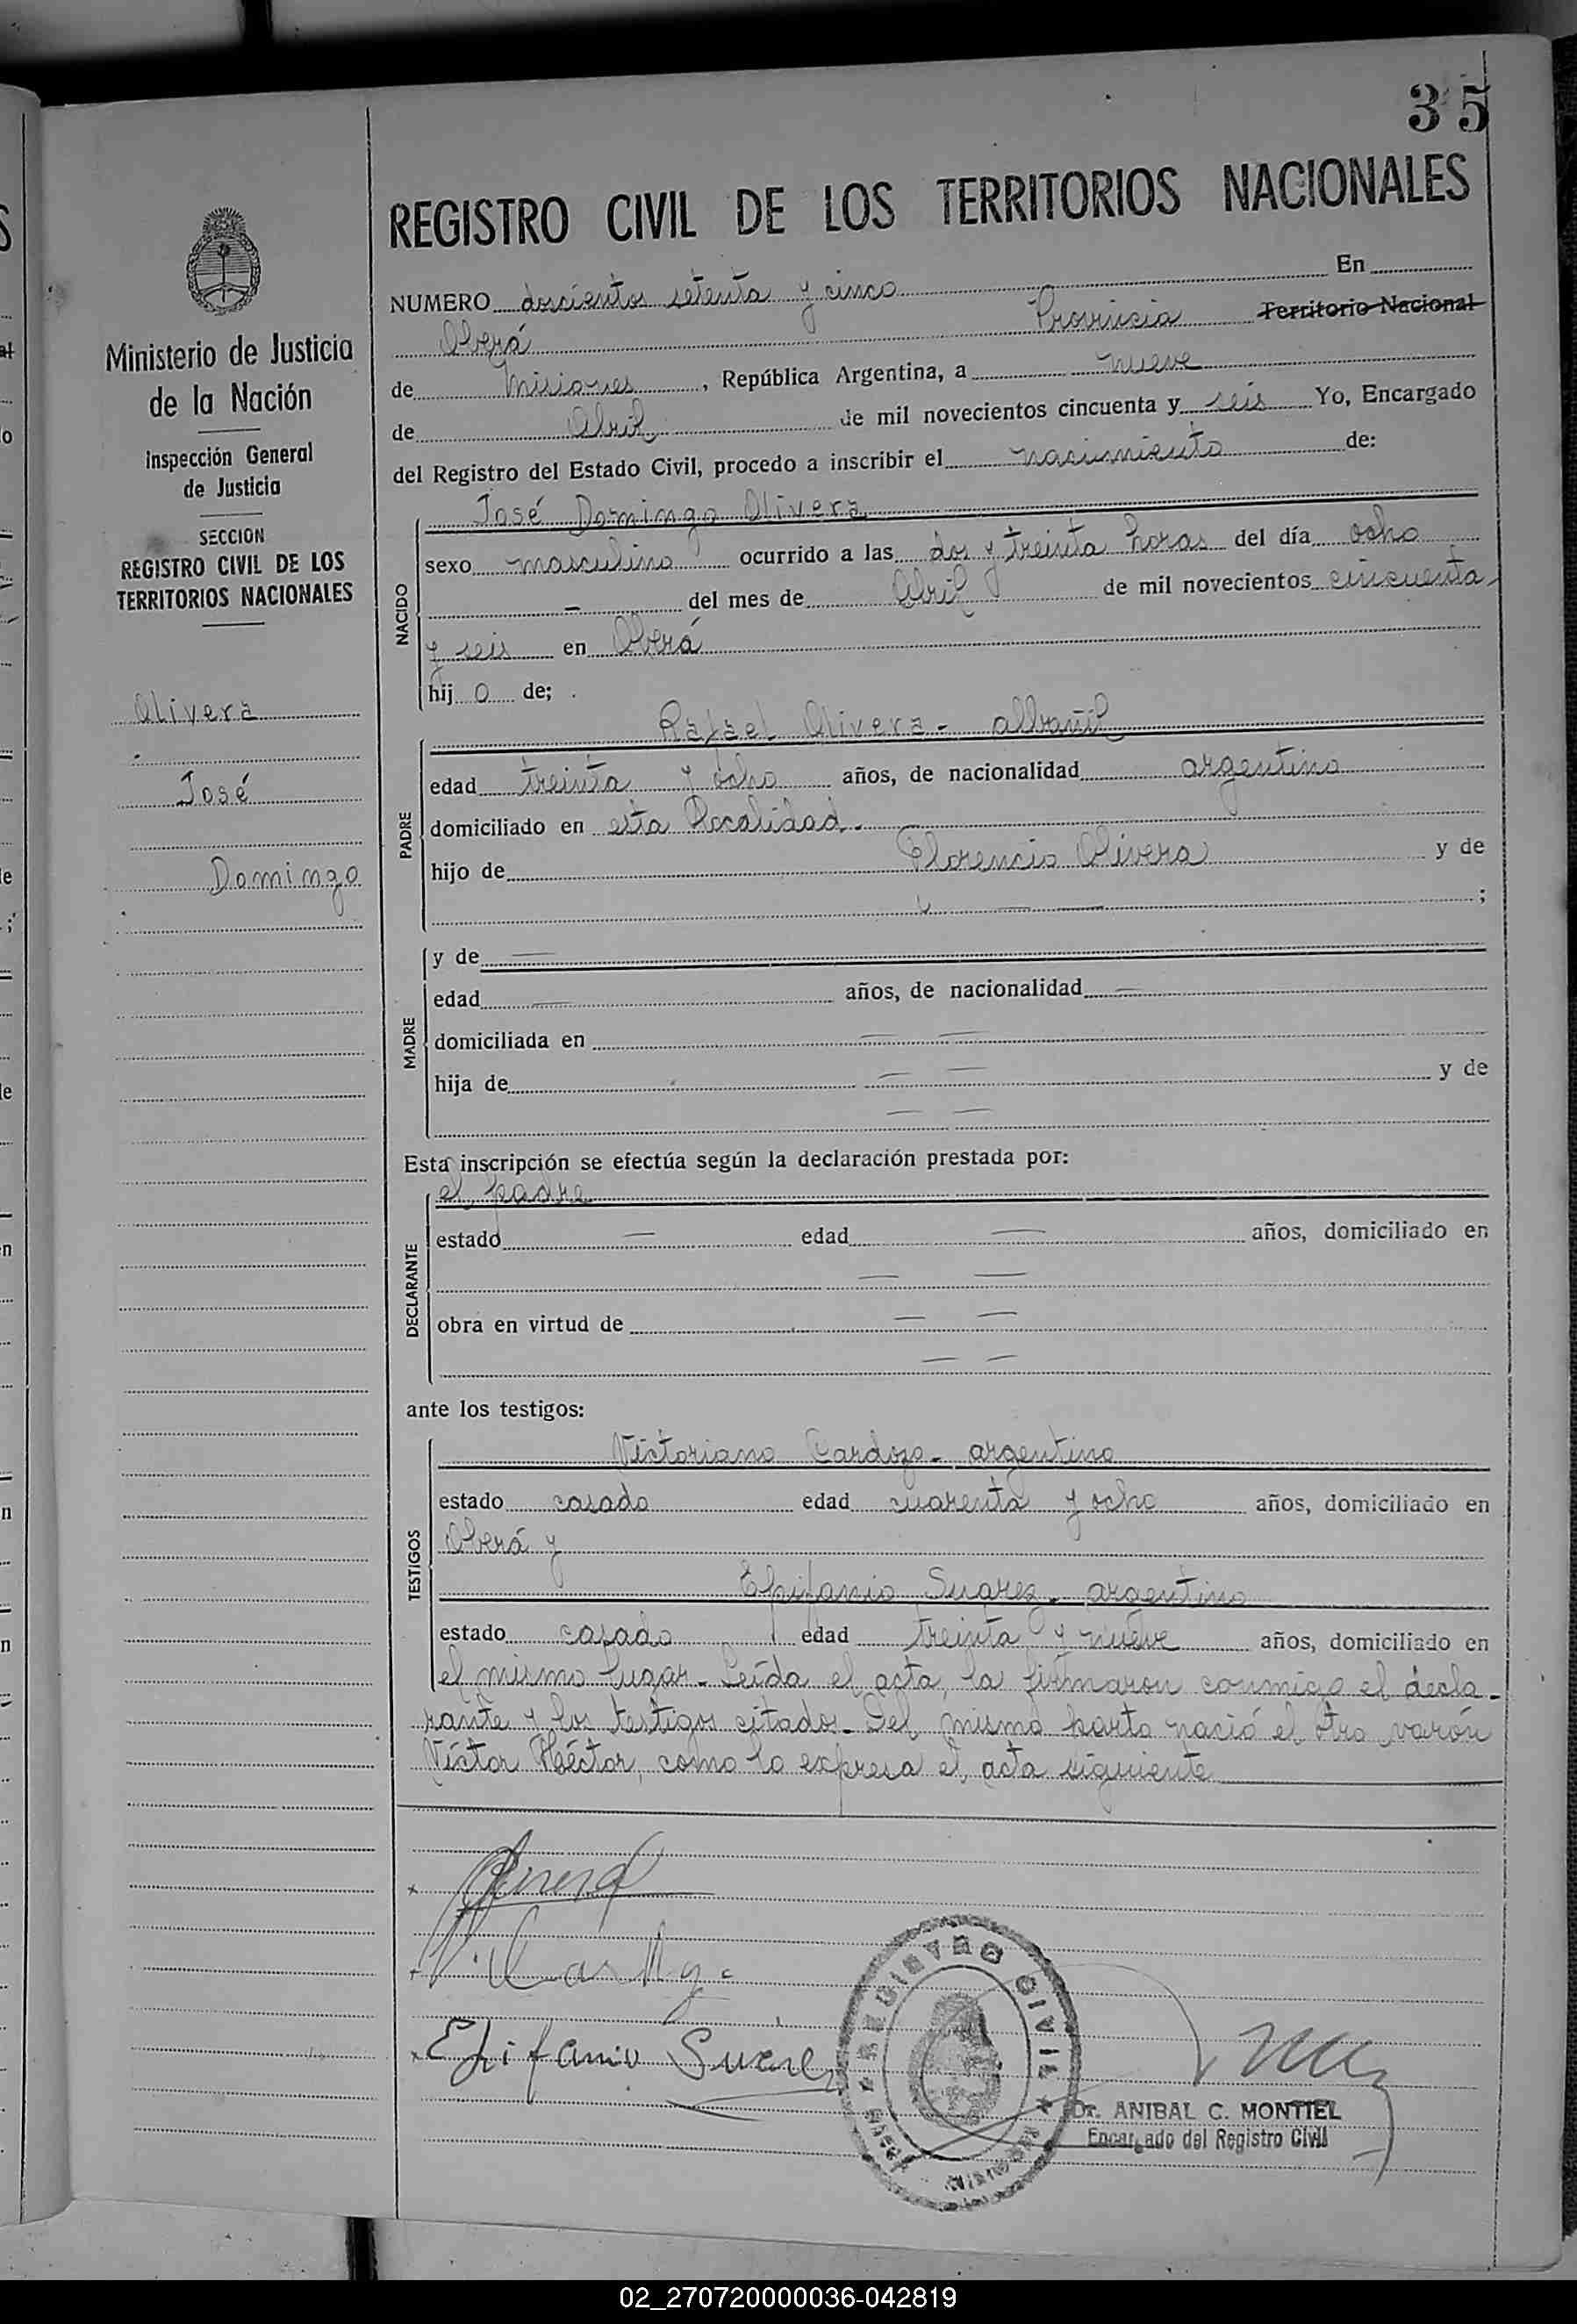 35
REGISTRO CIVIL DE LOS TERRITORIOS NACIONALES
Ministerio de Justicia
de la Nación
Inspección General
de Justicia
SECCION
REGISTRO CIVIL DE LOS
TERRITORIOS NACIONALES
Olivera
José
Domingo
NUMERO doscientos setenta y cinco En
Oberá Provincia Territorio Nacional
de Misiones, República Argentina, a nueve
de Abril de mil novecientos cincuenta y seis Yo, Encargado
del Registro del Estado Civil, procedo a inscribir el nacimiento de:
NACIDO
José Domingo Olivera
sexo masculino ocurrido a las dos y treinta horas del día ocho
— del mes de Abril de mil novecientos cincuenta
y seis en Oberá
hijo de;
PADRE
Rafael Olivera - albañil
edad treinta y ocho años, de nacionalidad argentino
domiciliado en esta Localidad.
hijo de Florencio Olivera y de
— — ;
MADRE
y de —
edad — años, de nacionalidad —
domiciliada en — —
hija de — — y de
— —
Esta inscripción se efectúa según la declaración prestada por:
DECLARANTE
el padre
estado — edad — años, domiciliado en
— —
obra en virtud de — —
— —
ante los testigos:
TESTIGOS
Victoriano Cardozo - argentino
estado casado edad cuarenta y ocho años, domiciliado en
Oberá y
Epifanio Suarez - argentino
estado casado edad treinta y nueve años, domiciliado en
el mismo lugar - Leída el acta, la firmaron conmigo el decla-
rante y los testigos citados - Del mismo parto nació el otro varón
Víctor Héctor, como lo expresa el acta siguiente
Epifanio Suarez
REGISTRO CIVIL
MISIONES
Dr. ANIBAL C. MONTIEL
Encargado del Registro Civil
02_270720000036-042819